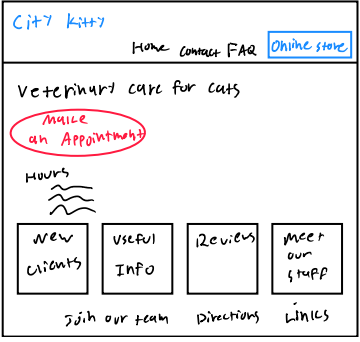 City Kitty
Home Contact FAQ Online store
Veterinary care for cats
Make
an Appointment
Hours
New
Clients
Useful
Info
Reviews
Meet
our
staff
Join our team Directions Links